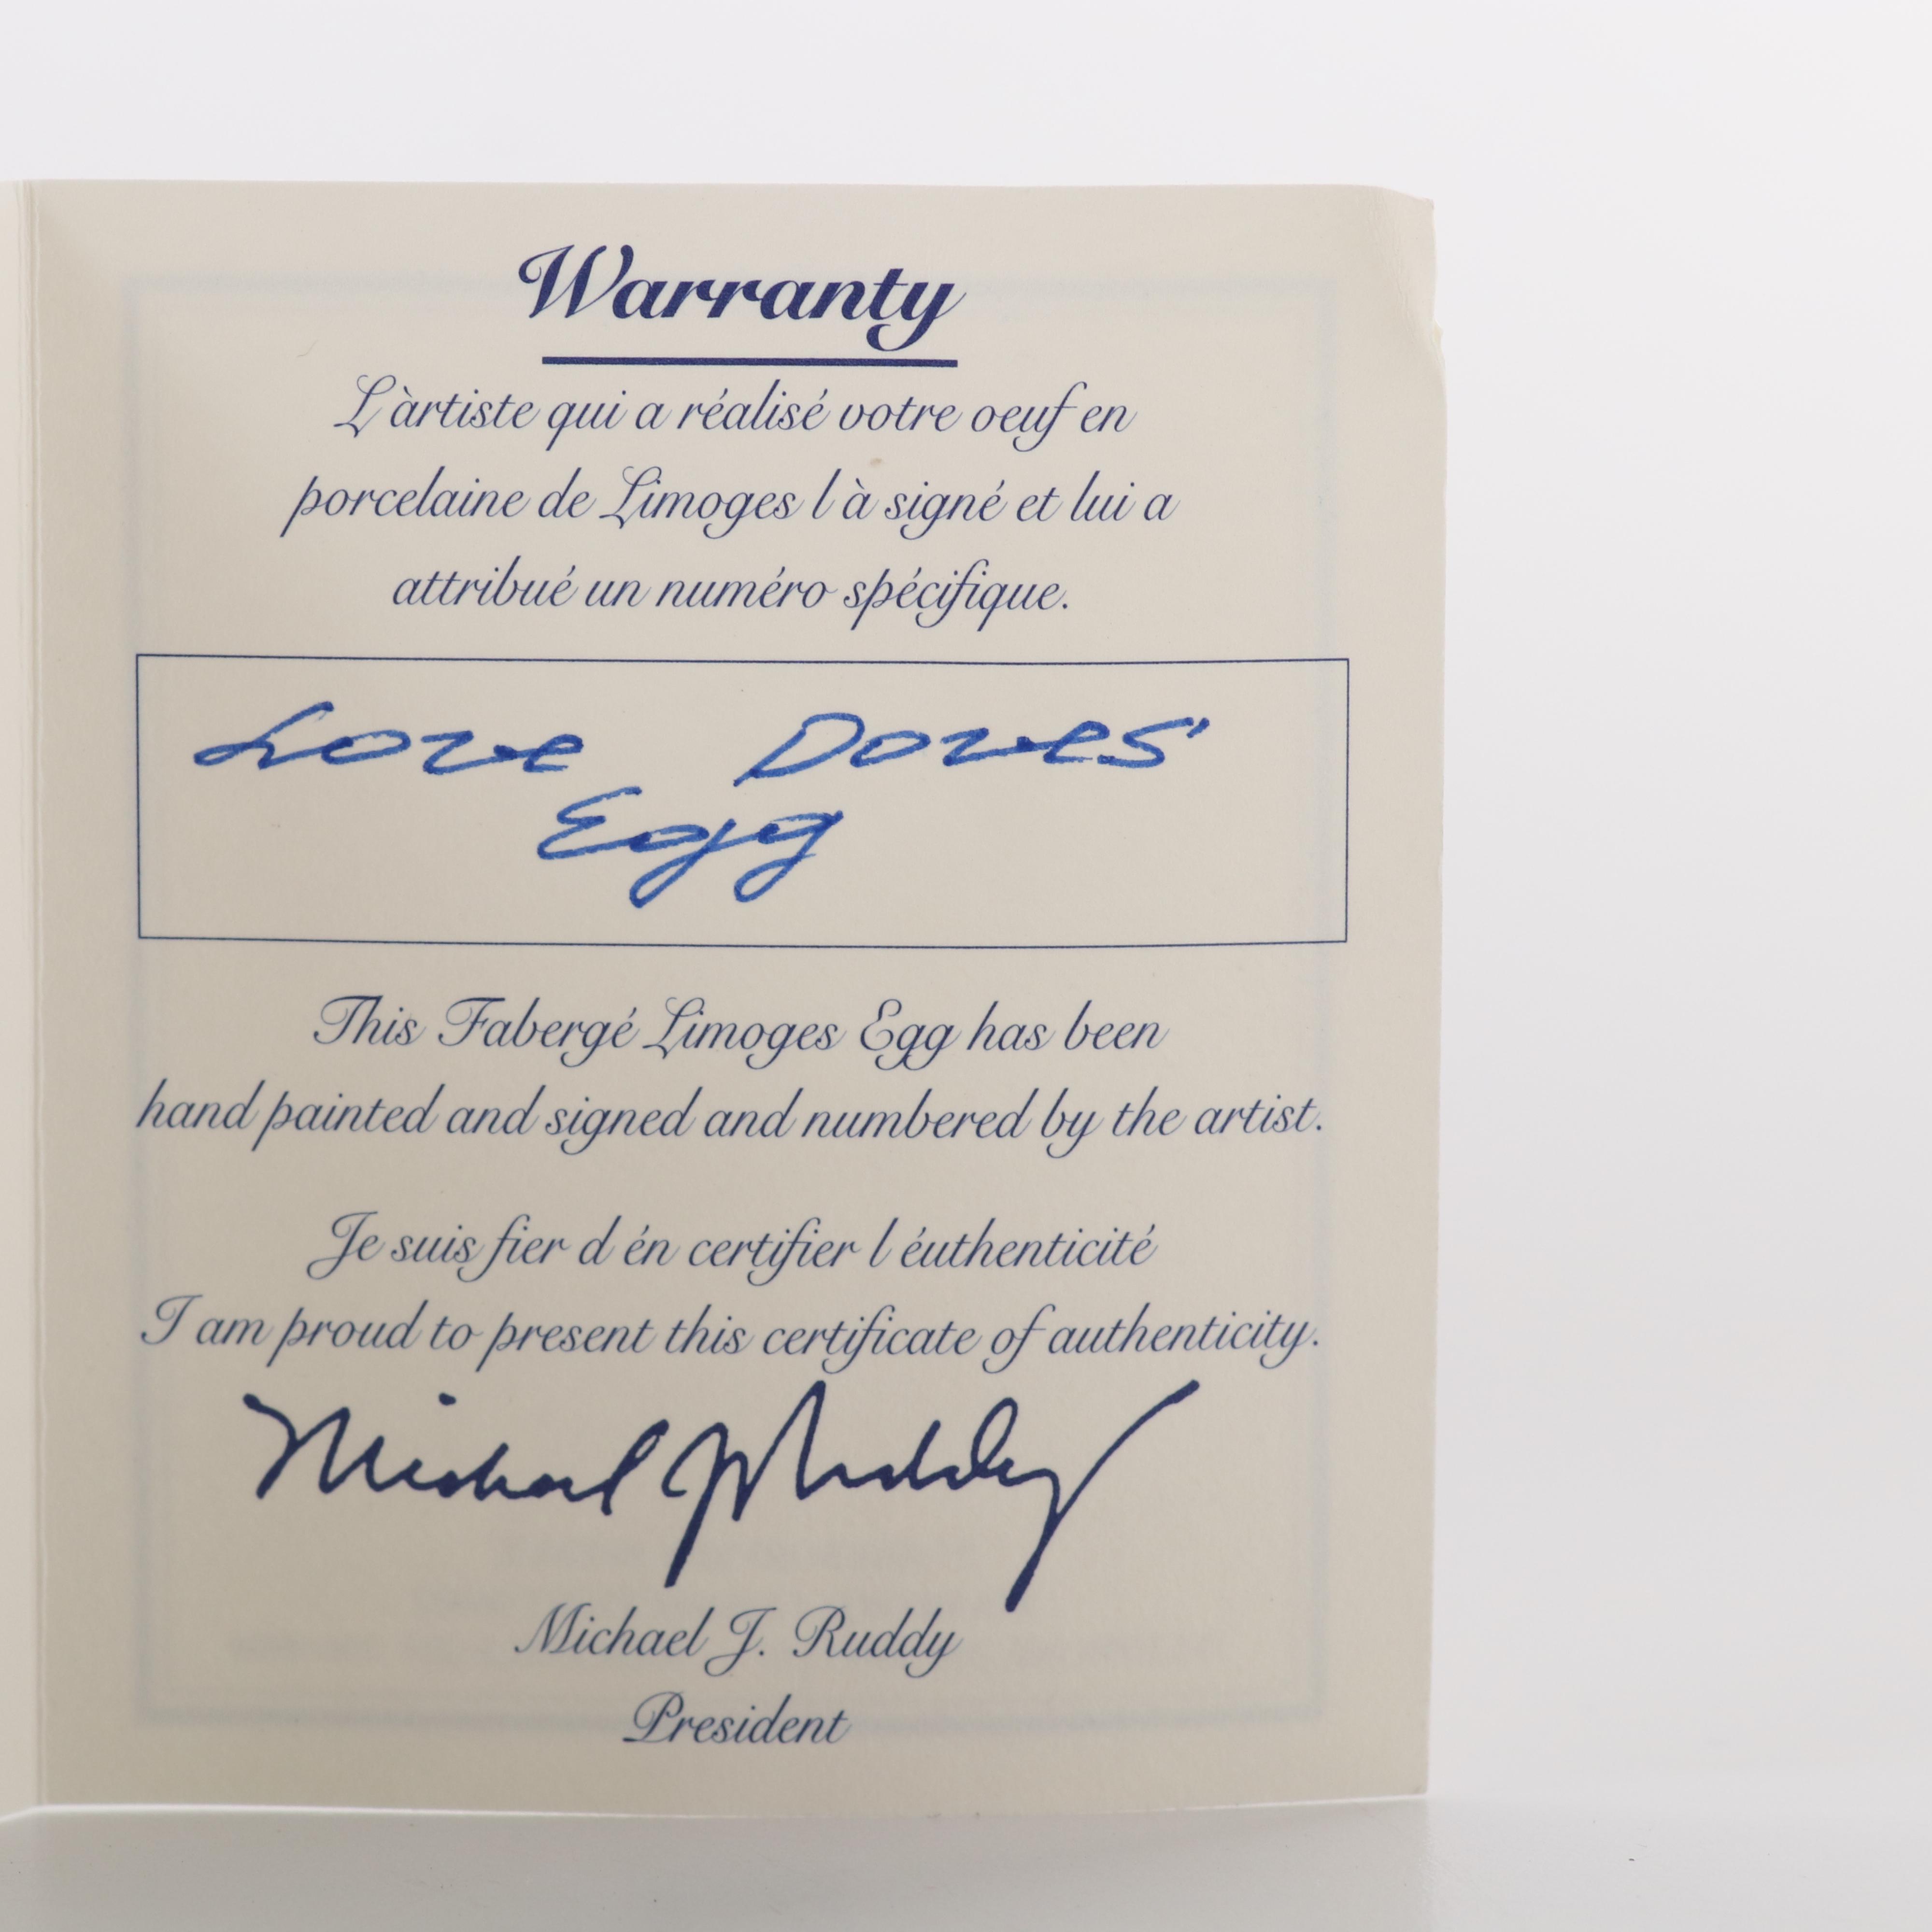 Warranty
L'àrtiste qui a réalisé votre oeuf en
porcelaine de Limoges l'à signé et lui a
attribué un numéro spécifique.
Love Doves
Egg
This Fabergé Limoges Egg has been
hand painted and signed and numbered by the artist.
Je suis fier d'én certifier l'éuthenticité
I am proud to present this certificate of authenticity.
Michael J Ruddy
Michael J. Ruddy
President